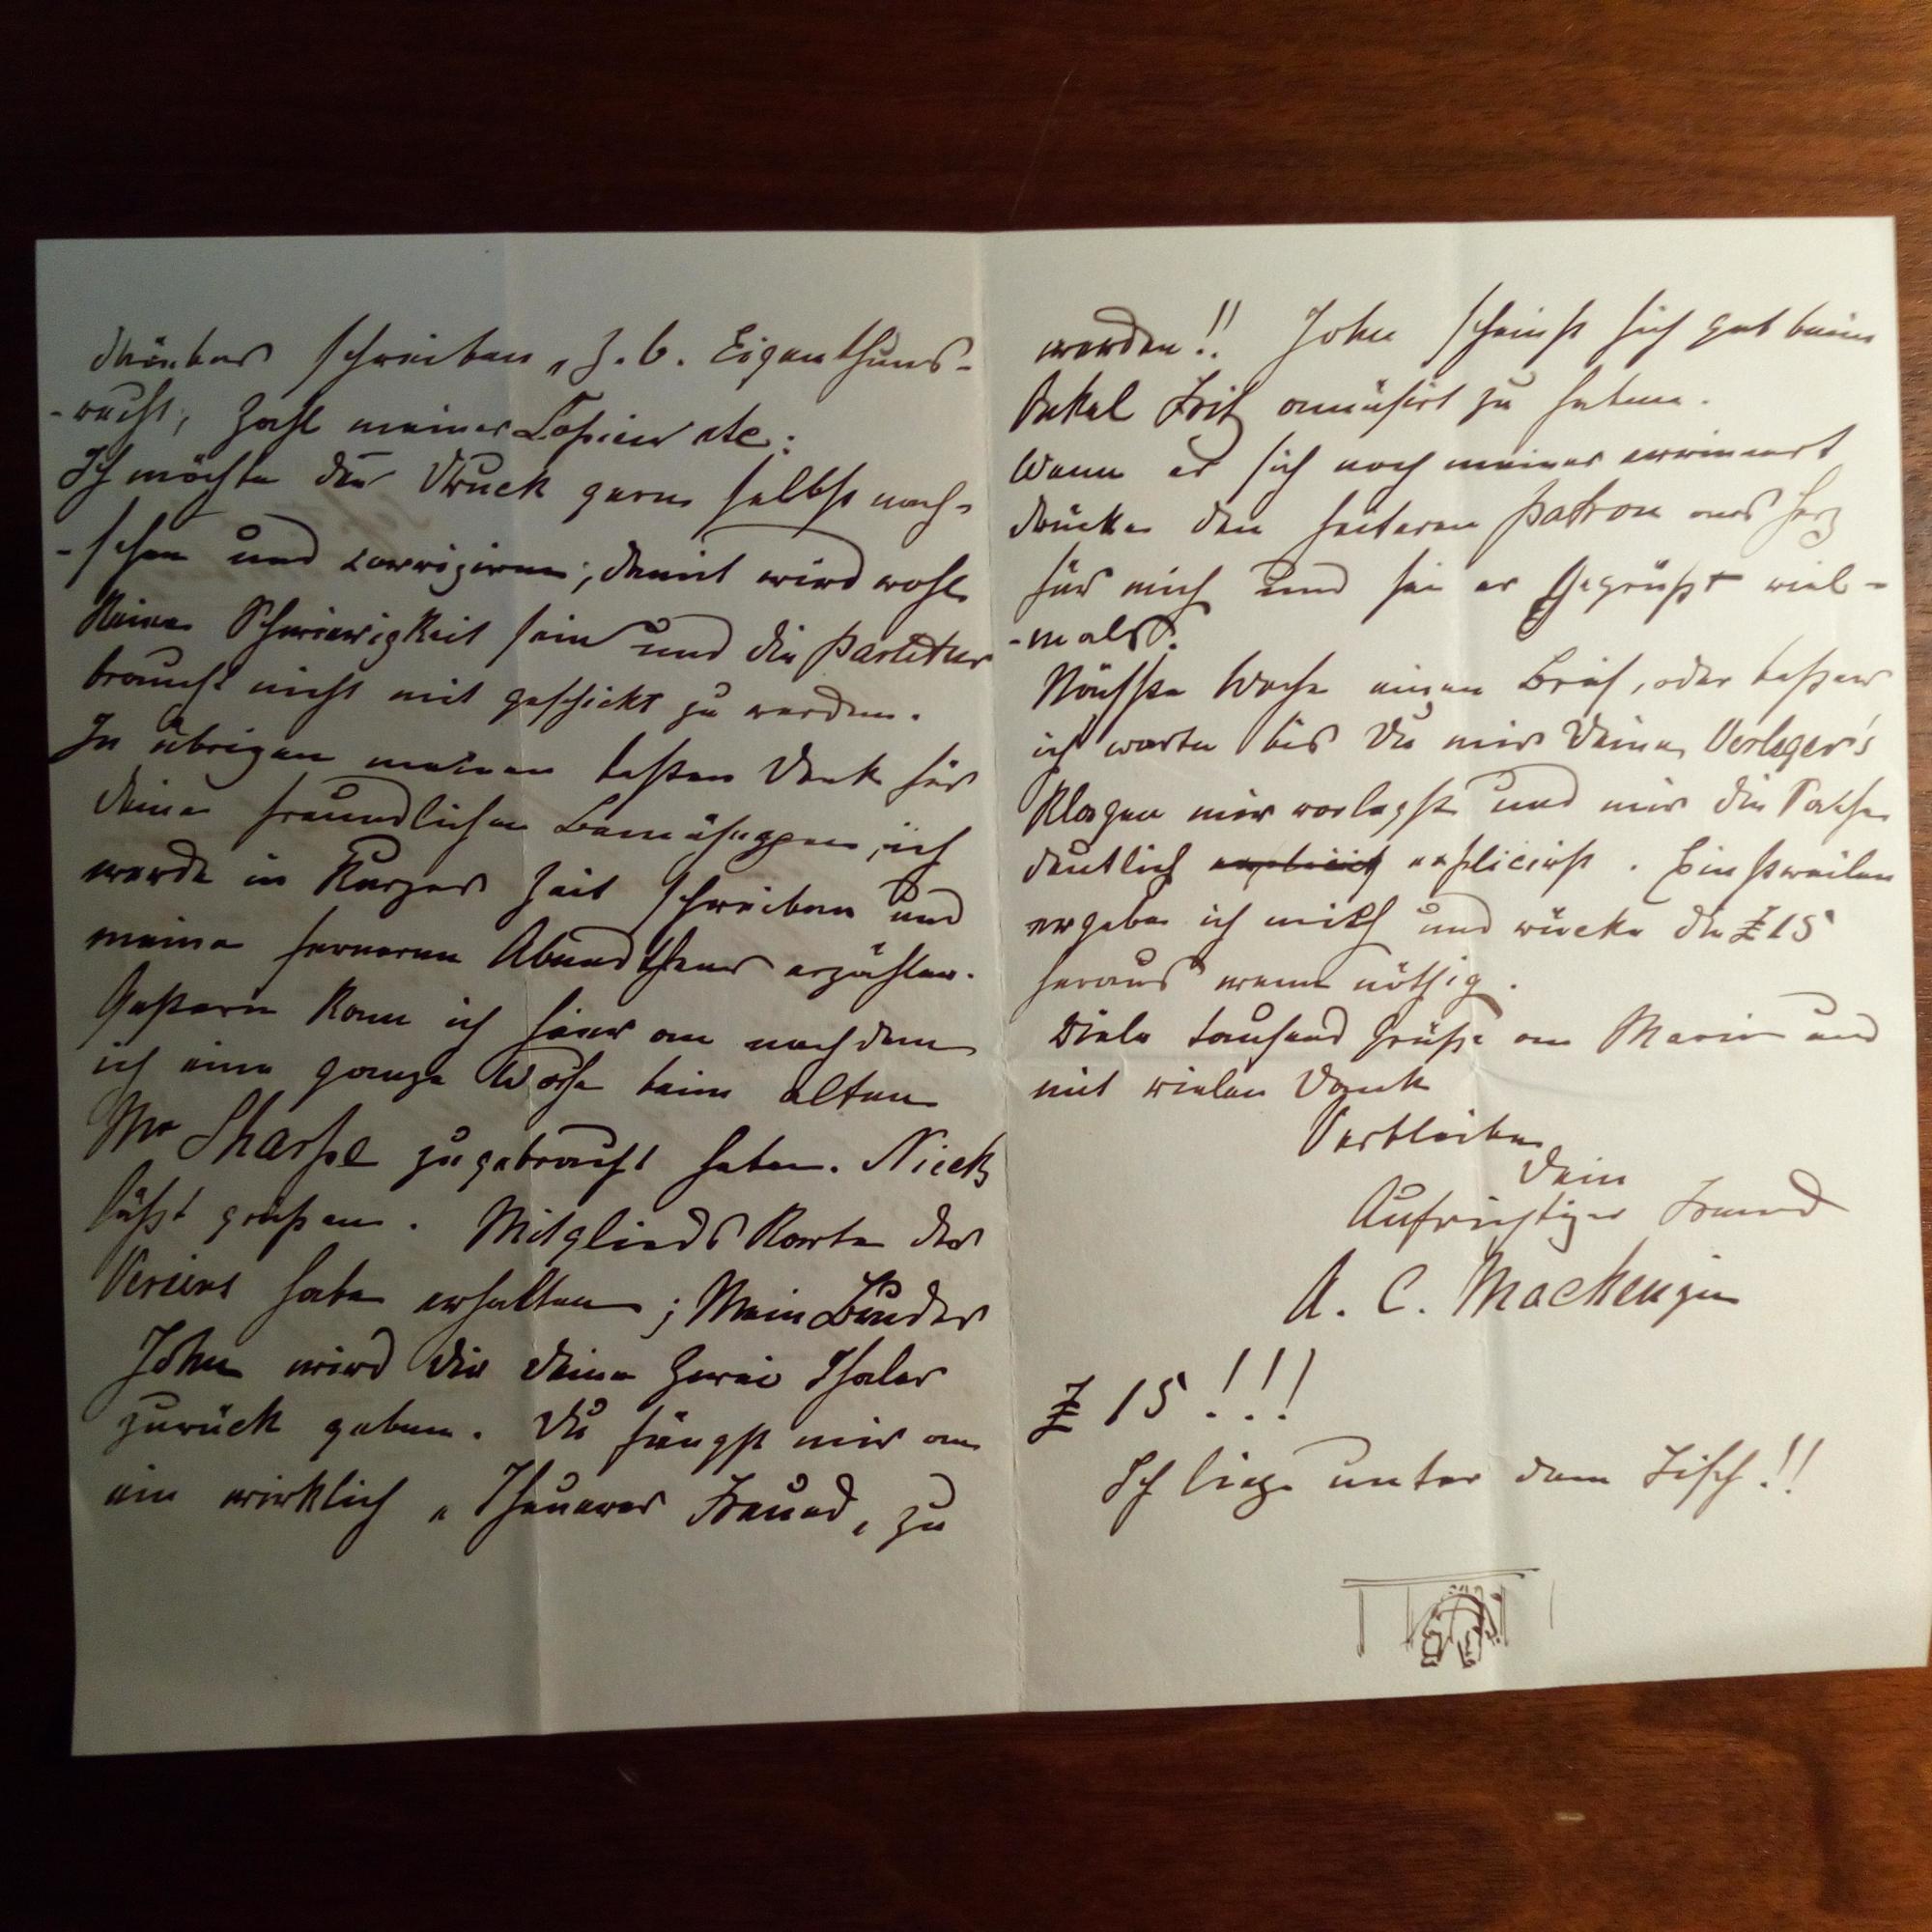 darüber schreiben, z.B. Eigenthums-
-recht, Zahl meiner Copien etc:
Ich möchte den Druck gerne selbst nach-
-sehen und corrigiren; damit wird wohl
keine Schwierigkeit sein und die Partitur
braucht nicht mit geschickt zu werden.
In übrigen meinen besten Dank für
deine freundlichen Bemühungen, ich
werde in kurzer Zeit schreiben und
meine ferneren Abendtheuer erzählen.
Gestern kam ich hier an nachdem
ich eine ganze Woche beim alten
Mr Sharpe zugebracht habe. Niecks
läßt grüßen. Mitglieds Karte des
Vereins habe erhalten; Mein Bruder
John wird dir deine zwei Thaler
zurück geben. Du fängst mir an
ein wirklich „Theuerer Freund„ zu
werden!! John scheint sich gut beim
Onkel Fritz amüsirt zu haben.
Wenn er sich noch meiner errinnert
drücke den heiteren Patron ans Herz
für mich und sei er gegrüßt viel-
-mals.
Nächste Woche einen Brief, oder besser
ich warte bis Du mir Deine Verleger's
Klagen mir vorlegst und mir die Sache
deutlich explicirst. Einstweilen
ergebe ich mich und rücke die £15
heraus wenn nöthig.
Viele tausend Grüße an Marie und
mit vielen Dank
Verbleibe
Dein
Aufrichtiger Freund
A. C. Mackenzie
£ 15!!!
Ich liege unter dem Tisch!!